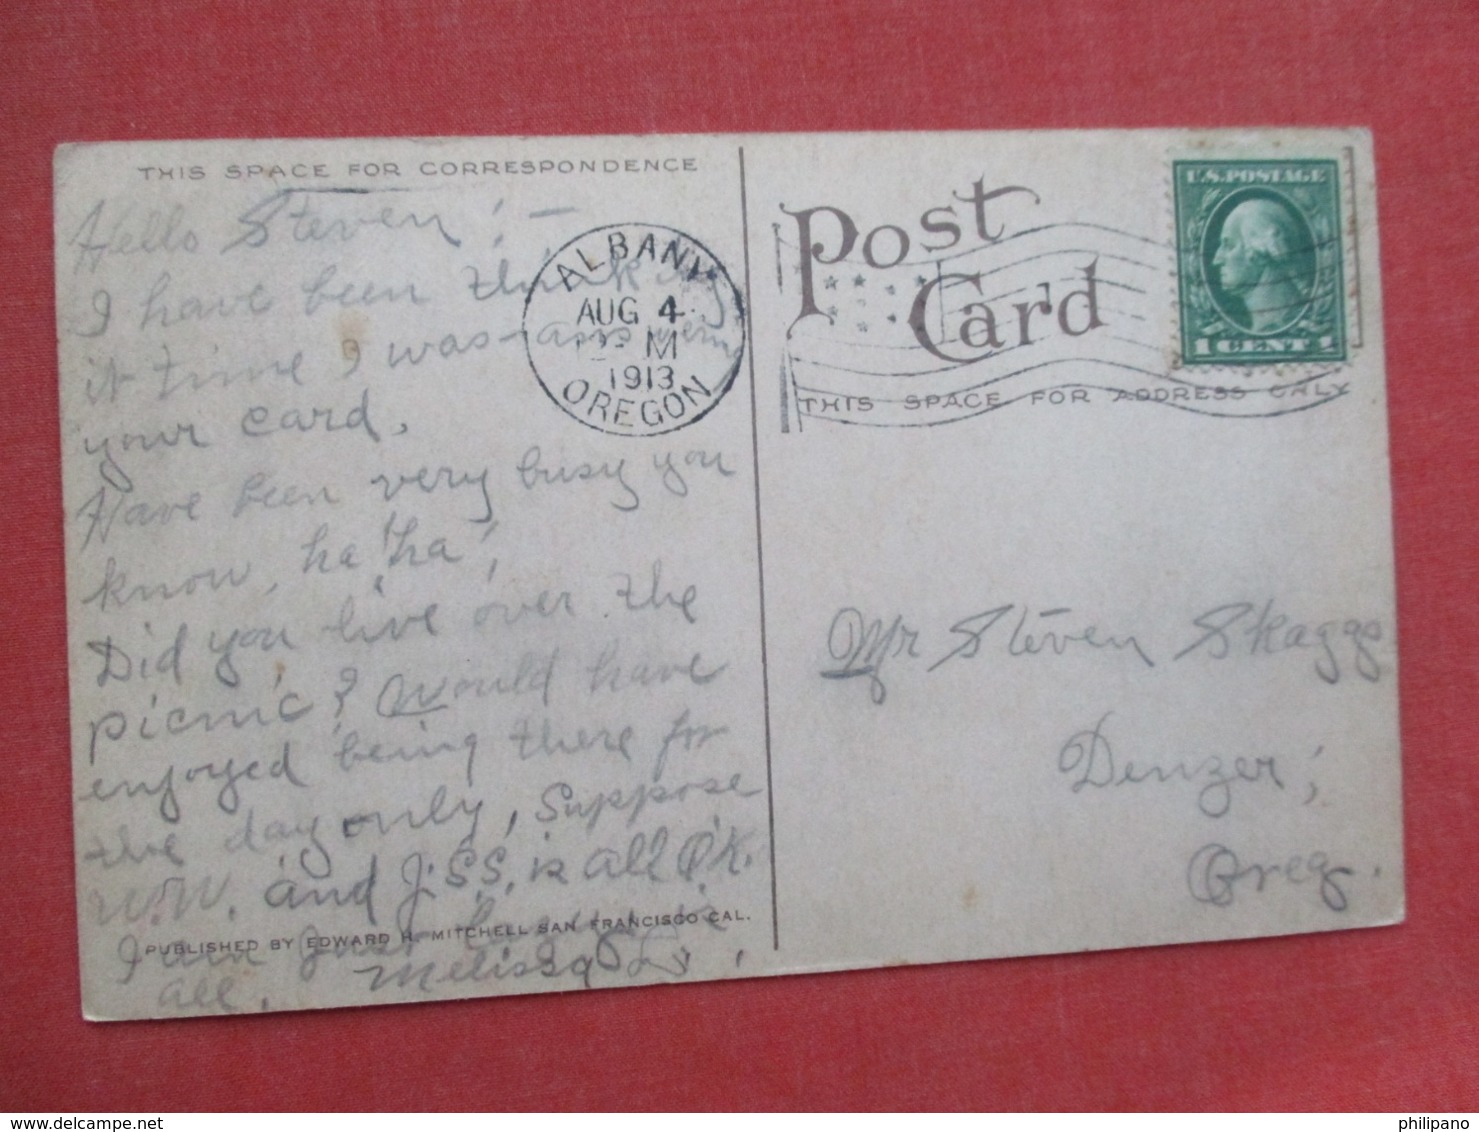 THIS SPACE FOR CORRESPONDENCE
Hello Steven; —
I have been thinking
it time I was answering
your card.
Have been very busy you
know, ha! ha!
Did you live over the
picnic? Would have
enjoyed being there for
the day only, Suppose
W.W. and J.S.S. is all O.K.
I am just
all. Melissa
PUBLISHED BY EDWARD H. MITCHELL SAN FRANCISCO CAL.
ALBANY
AUG 4
M
1913
OREGON
Post
Card
THIS SPACE FOR ADDRESS ONLY
U.S. POSTAGE
1 CENT 1
Mr Steven Skaggs
Denzer;
Oreg.
delcampe.net
philipano